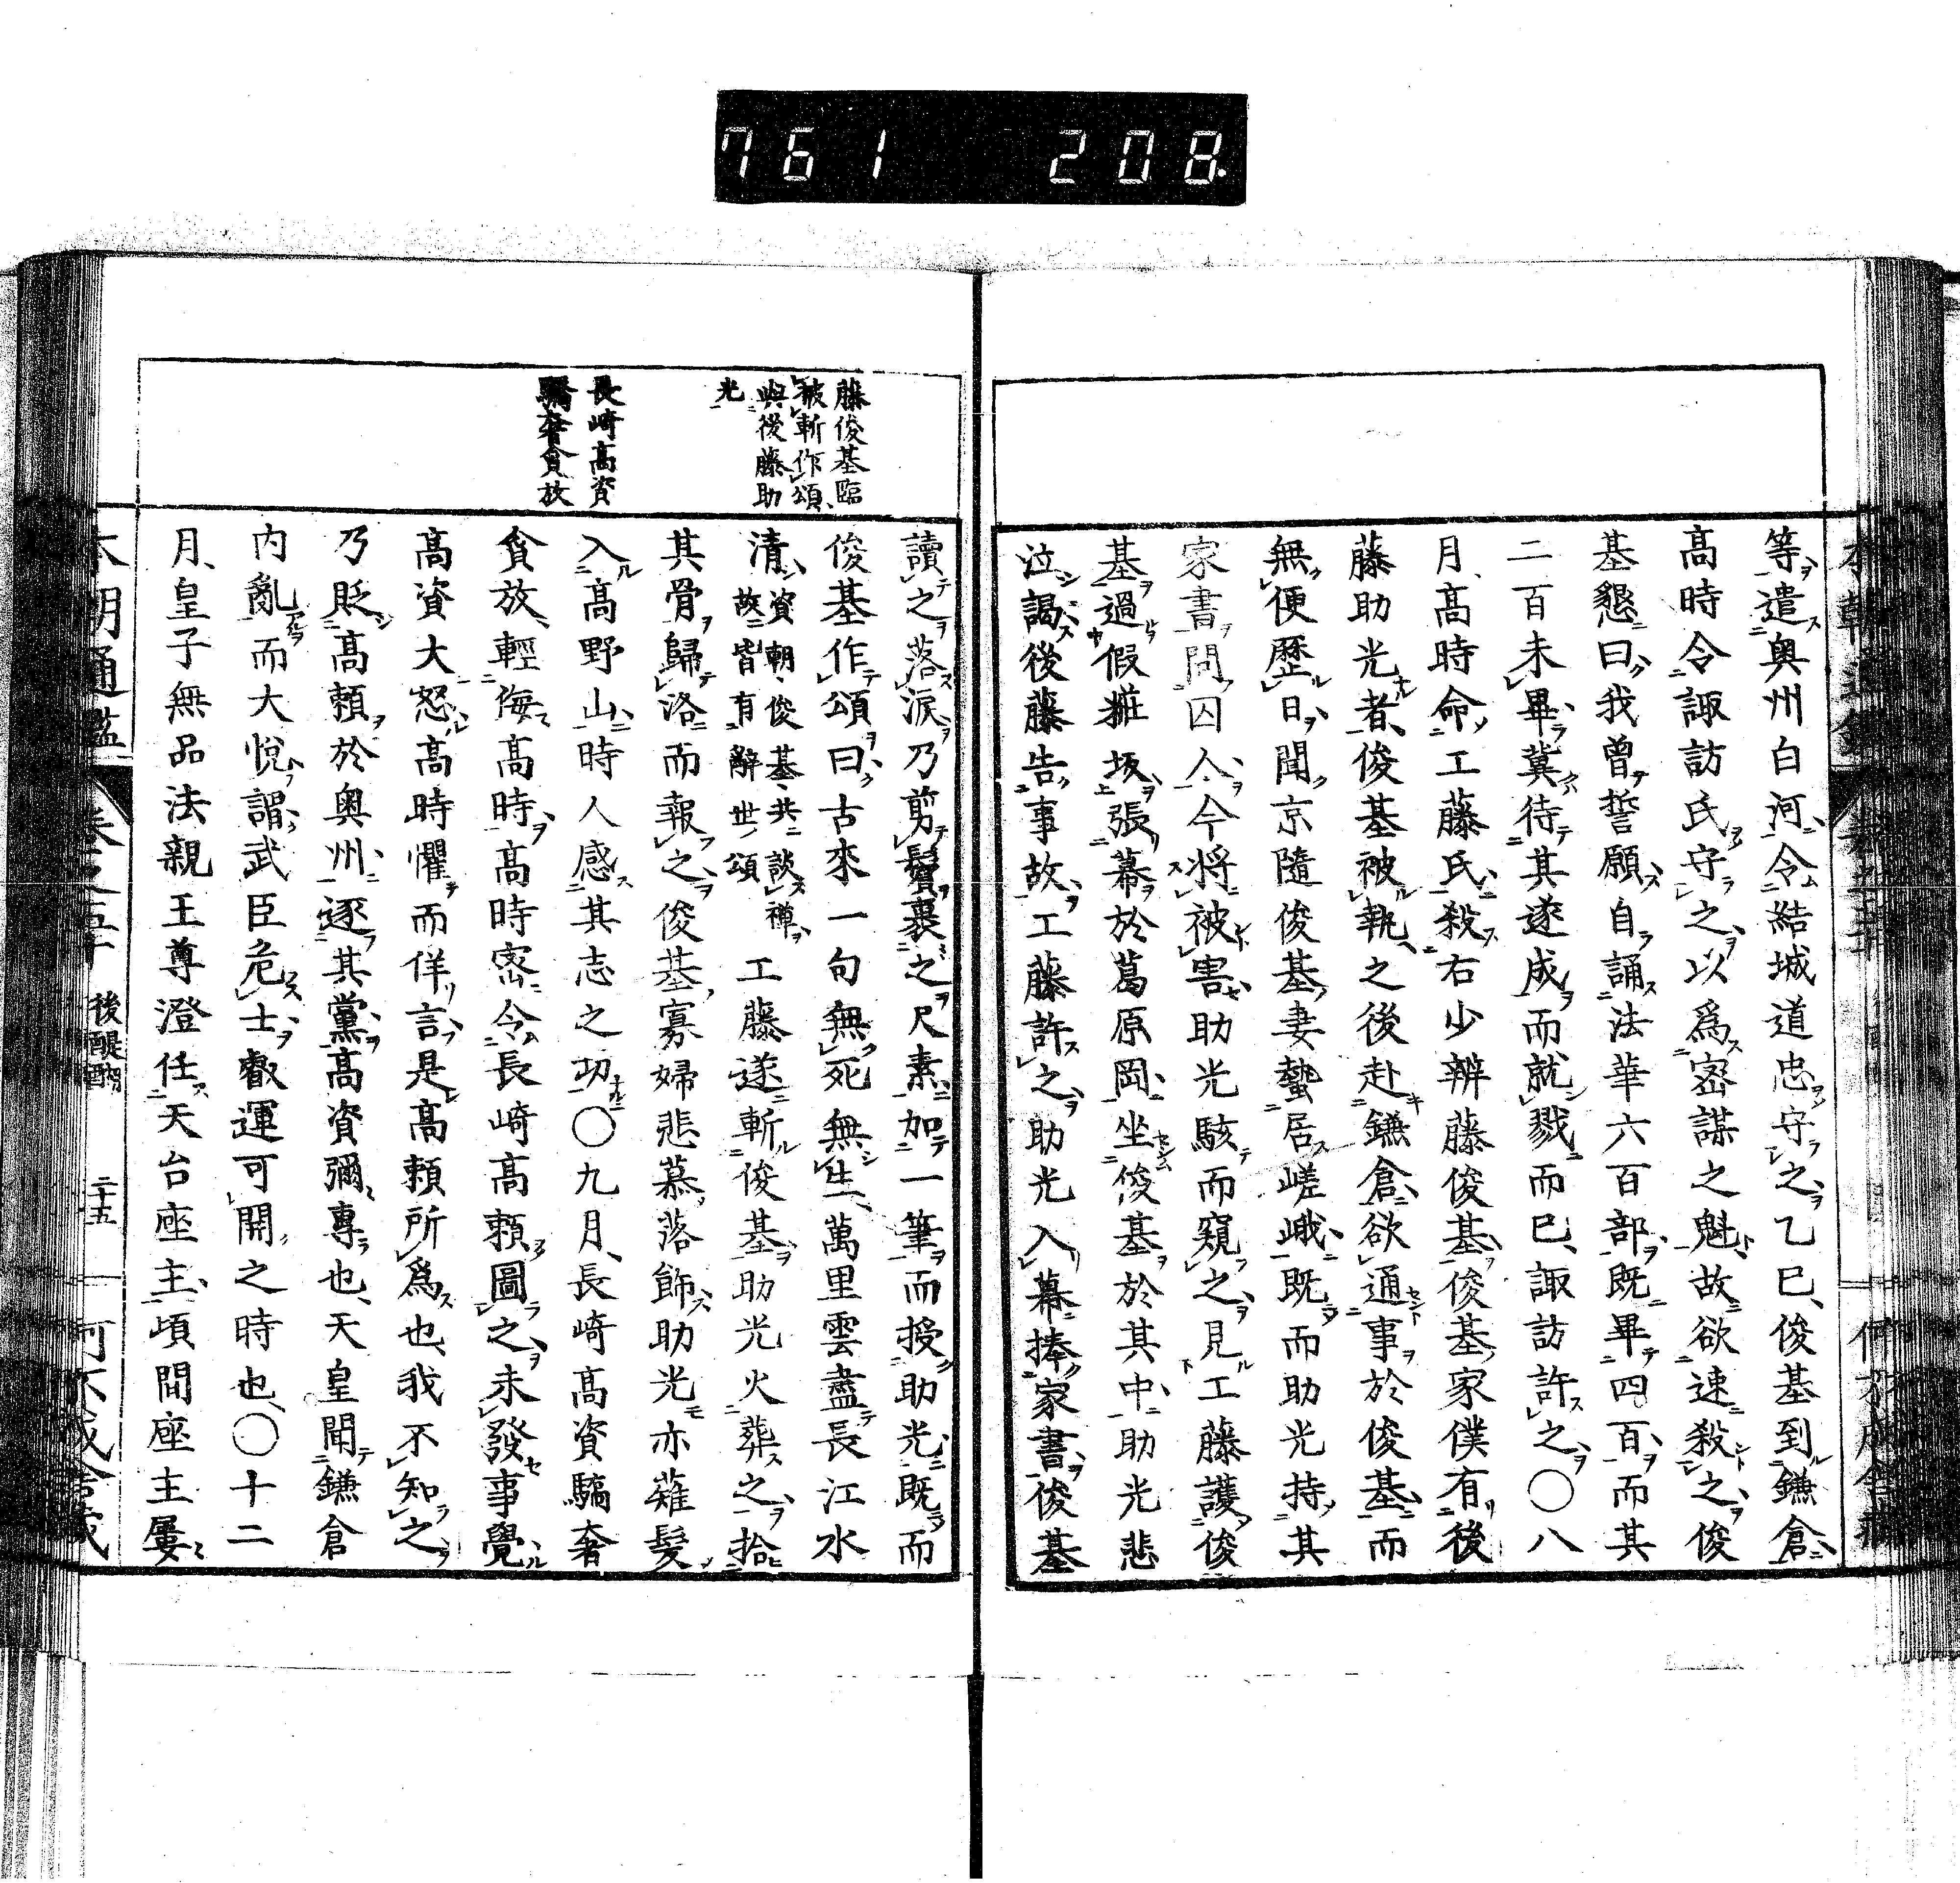 761 208
等遣奥州白河令結城道忠守之乙巳俊基到鎌倉
高時令諏訪氏守之以爲密謀之魁故欲速殺之俊
基懇曰我曾誓願自誦法華六百部既畢四百而其
二百未畢冀待其遂成而就戮而已諏訪許之○八
月高時命工藤氏殺右少辨藤俊基俊基家僕有後
藤助光者俊基被執之後赴鎌倉欲通事於俊基而
無便歷日聞京隨俊基妻蟄居嵯峨既而助光持其
家書問囚人今將被害助光駭而窺之見工藤護俊
基過假粧坂張幕於葛原岡坐俊基於其中助光悲
泣謁後藤告事故工藤許之助光入幕捧家書俊基
藤俊基臨
被斬作頌
與後藤助
光
長崎高資
驕奢貪放
讀之落淚乃剪鬢裹之尺素加一筆而授助光既而
俊基作頌曰古來一句無死無生萬里雲盡長江水
清資朝俊基共談禪故皆有辭世頌工藤遂斬俊基助光火葬之拾
其骨歸洛而報之俊基寡婦悲慕落飾助光亦薙髮
入高野山時人感其志之功○九月長崎高資驕奢
貪放輕侮高時高時密令長崎高賴圖之未發事覺
高資大怒高時懼而佯言是高賴所爲也我不知之
乃貶高賴於奥州逐其黨高資彌專也天皇聞鎌倉
內亂而大悅謂武臣危士叡運可開之時也○十二
月皇子無品法親王尊澄任天台座主頃間座主屢
本朝通鑑 卷之五十 後醍醐 二十五